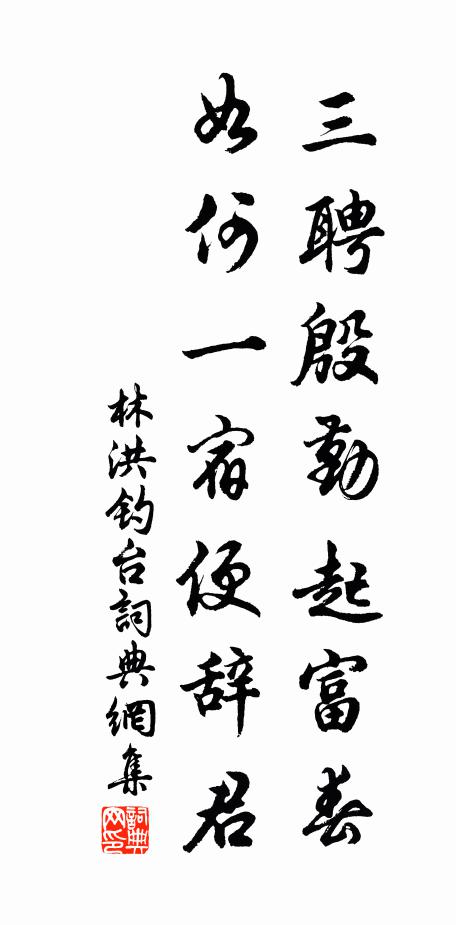 三聘殷勤起富春
如何一宿便辞君
林洪钓台詞典網集
詞典
网印